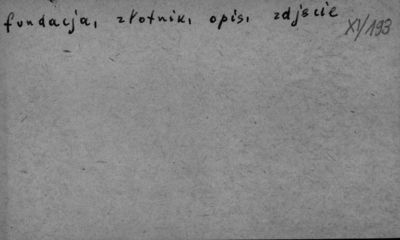 fundacja, złotnik, opis, zdjęcie
XI/193